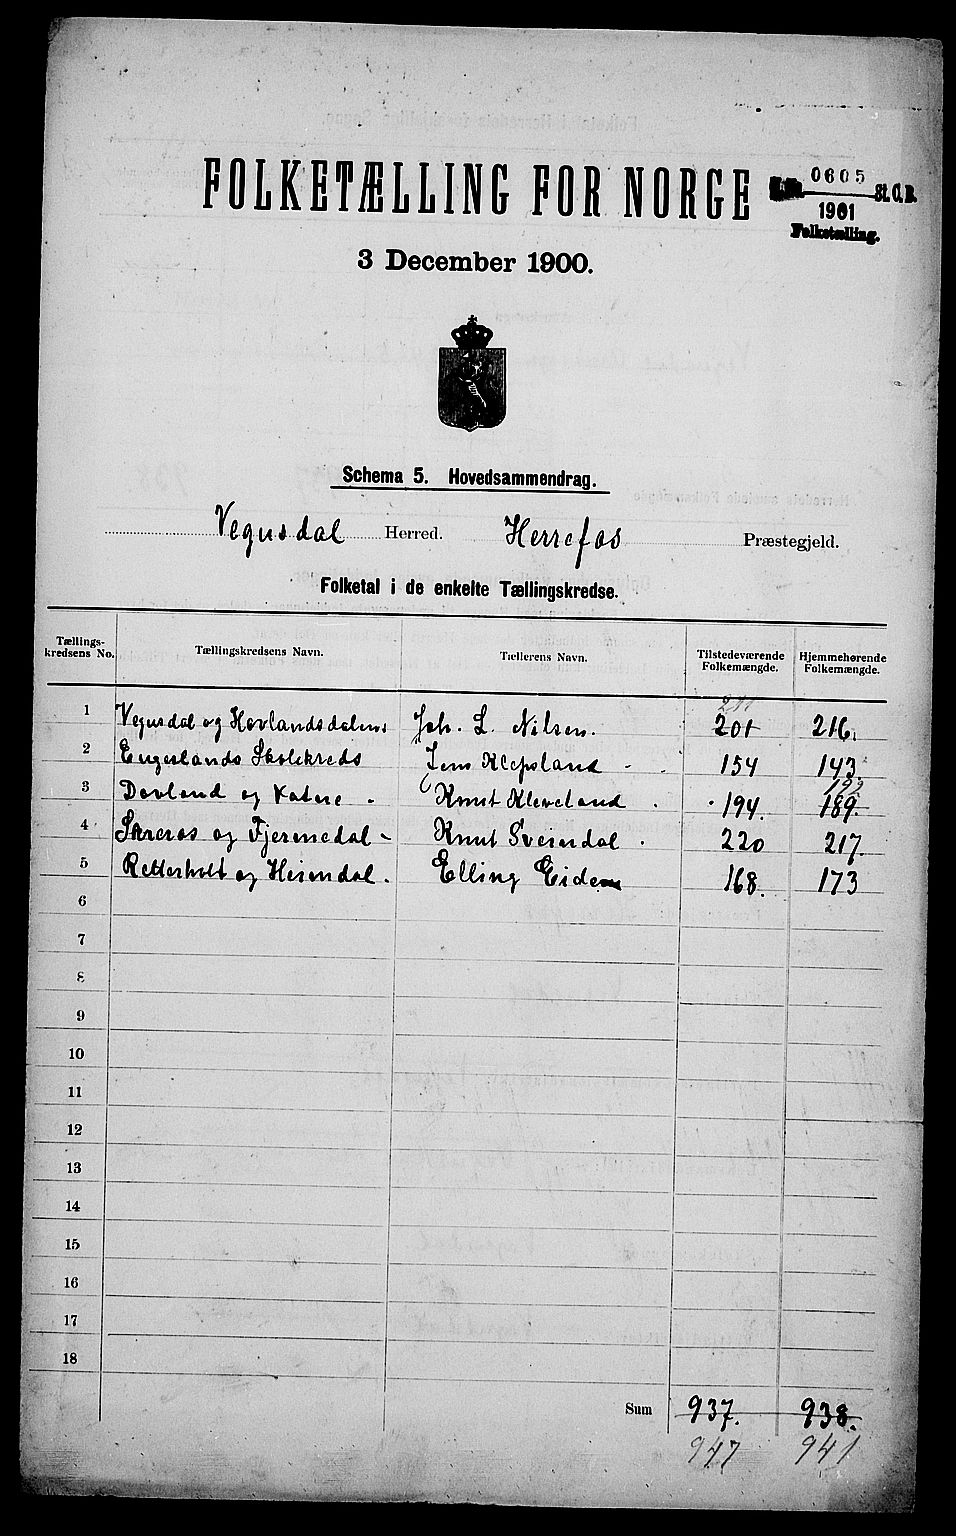 FOLKETÆLLING FOR NORGE
0605
St. C. B.
1901
Folketælling.
3 December 1900.
Schema 5. Hovedsammendrag.
Vegusdal Herred. Herrefos Præstegjeld.
Folketal i de enkelte Tællingskredse.
Tællings-kredsens No. Tællingskredsens Navn. Tællerens Navn. Tilstedeværende Folkemængde. Hjemmehørende Folkemængde.
211
1 Vegusdal og Hovlandsdalens Joh. L. Nilsen. 201 216.
2 Engeslands Skolekreds Jens Klepsland 154 143.
192
3 Dovland og Katerе. Knut Kleveland 194. 189.
4 Skreros og Fjermedal Knut Sveindal 220 217.
5 Retterholt og Heimdal. Elling Eide 168. 173
6
7
8
9
10
11
12
13
14
15
16
17
18
Sum 937. 938.
947 941